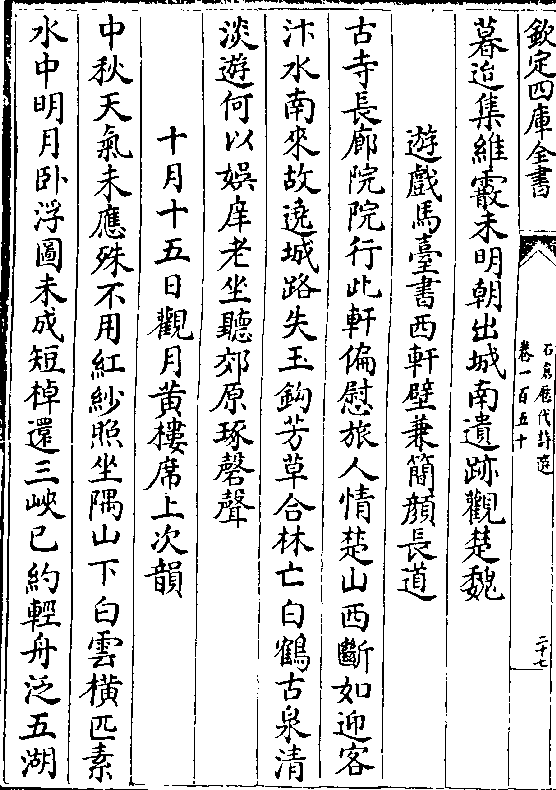 欽定四庫全書
石倉歷代詩選
卷一百五十
二十七
暮迨集維霰未明朝出城南遺跡觀楚魏
遊戲馬臺書西軒壁兼簡顏長道
古寺長廊院院行此軒偏慰旅人情楚山西斷如迎客
汴水南來故遶城路失玉鉤芳草合林亡白鶴古泉清
淡遊何以娛庠老坐聽郊原琢磬聲
十月十五日觀月黃樓席上次韻
中秋天氣未應殊不用紅紗照坐隅山下白雲橫匹素
水中明月卧浮圖未成短棹還三峽已約輕舟泛五湖